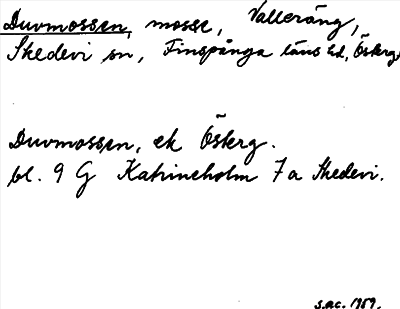 Duvmossen, mosse, Valleräng,
Skedevi sn, Finspånga läns hd, Österg
Duvmossen, ek Österg.
bl. 9 G Katrineholm 7 a Skedevi.
s.ac. 1959.